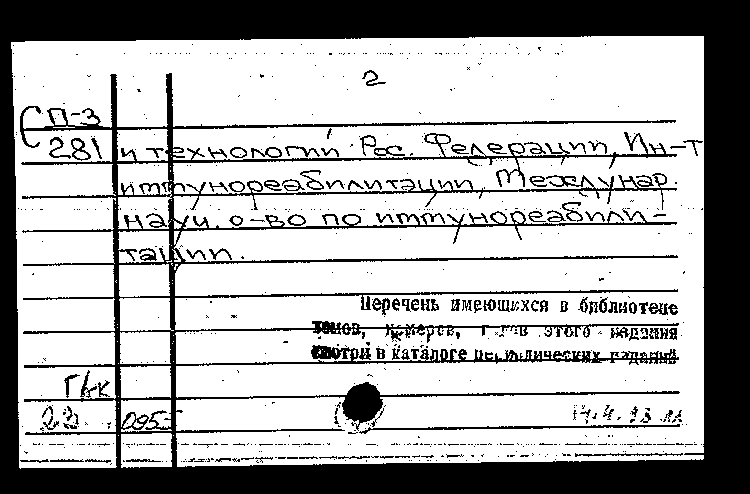 2
С П-3
281 и технологий Рос. Федерации, Ин-т
иммунореабилитации, Междунар.
науч. о-во по иммунореабили-
тации.
Перечень имеющихся в библиотеке
томов, номеров, годов этого издания
смотри в каталоге периодических изданий
Г/к
23 095
14.4.93